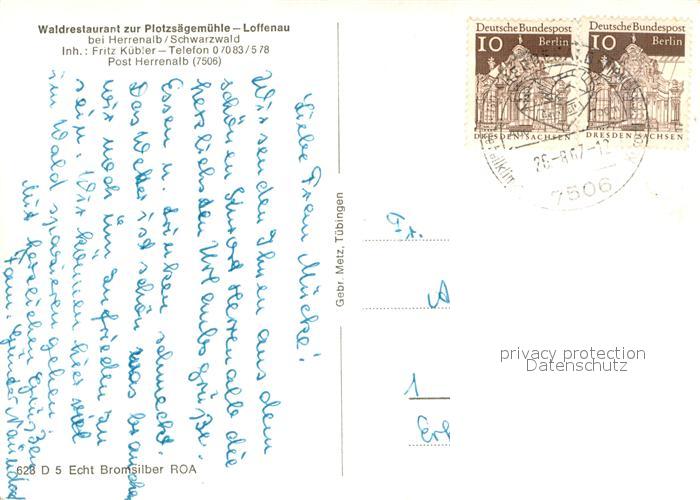 Waldrestaurant zur Plotzsägemühle – Loffenau
bei Herrenalb / Schwarzwald
Inh.: Fritz Kübler – Telefon 0 70 83 / 5 78
Post Herrenalb (7506)
Liebe Frau Mücke!
Wir senden Ihnen aus dem
schönen Kurort Herrenalb die
herzlichsten Urlaubsgrüße.
Essen u. trinken schmeckt.
Das Wetter ist schön was brauchen
wir noch um zufrieden zu
sein. Wir können hier viel
im Wald spazieren gehen
Mit herzlichen Grüßen
Fam. Günter
628 D 5 Echt Bromsilber ROA
Gebr. Metz, Tübingen
Deutsche Bundespost
10 Berlin
DRESDEN-SACHSEN
Deutsche Bundespost
10 Berlin
DRESDEN-SACHSEN
7506
Fr.
1
privacy protection
Datenschutz